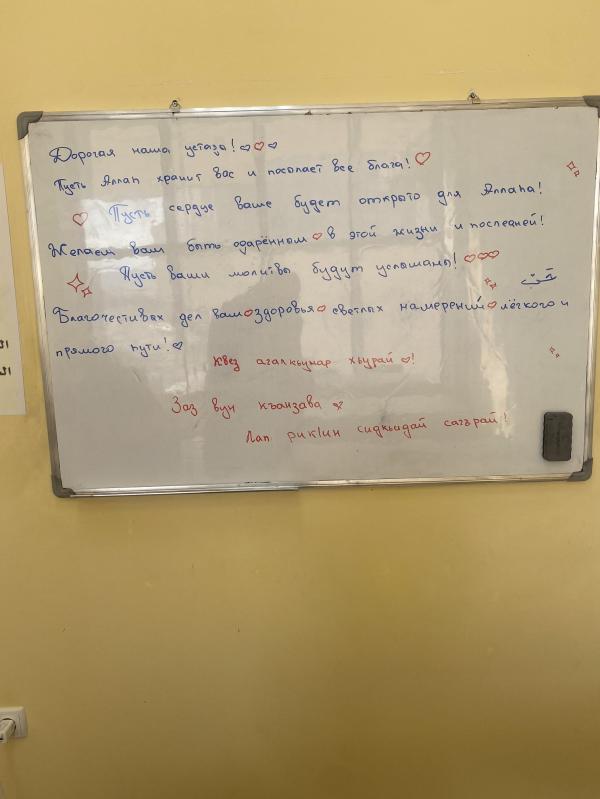 Дорогая наша устаза! ♡♡♡
Пусть Аллаh хранит вас и посылает все блага! ♡
♡ Пусть сердце ваше будет открыто для Аллаhа!
Желаем вам быть одарённым ♡ в этой жизни и последней!
Пусть ваши молитвы будут услышаны! ♡♡♡
Благочестивых дел вам♡здоровья♡светлых намерений♡лёгкого и
прямого пути! ♡
Квез агалкьунар хьурай ♡!
Заз вун кIанзава ♡
Лап рикIин сидкьидай сагърай!